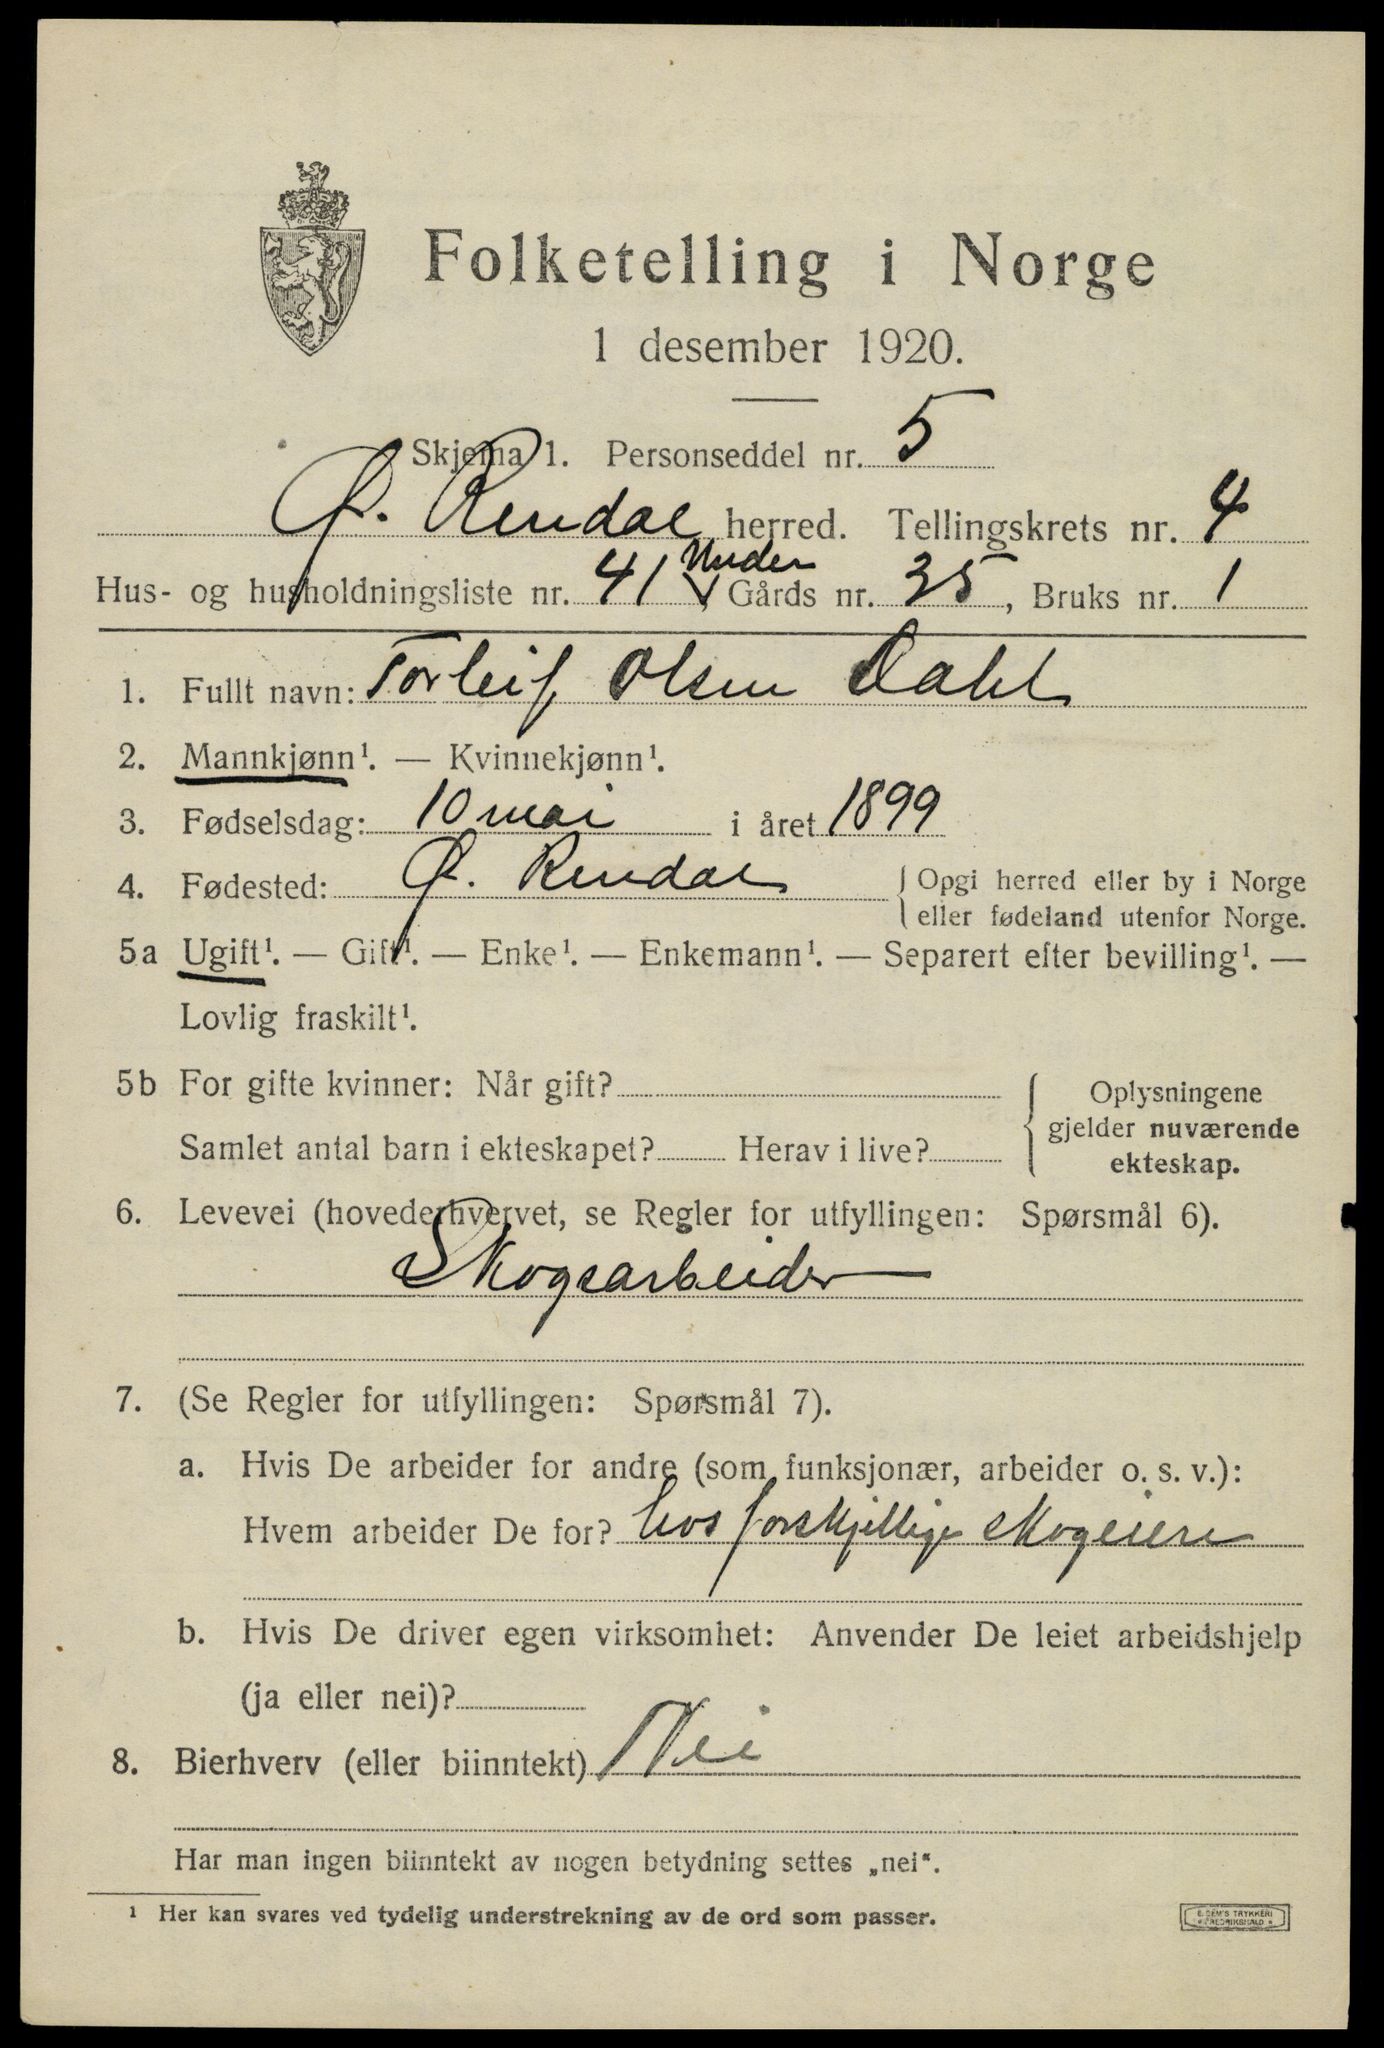 Folketelling i Norge
1 desember 1920.
Skjema 1. Personseddel nr. 5
Ø. Rendal herred. Tellingskrets nr. 4
Under
Hus- og husholdningsliste nr. 41, Gårds nr. 35, Bruks nr. 1
1. Fullt navn: Torleif Olsen Dahl
2. Mannkjønn¹. — Kvinnekjønn¹.
3. Fødselsdag: 10 mai i året 1899
4. Fødested: Ø. Rendal { Opgi herred eller by i Norge
eller fødeland utenfor Norge.
5a Ugift¹. — Gift¹. — Enke¹. — Enkemann¹. — Separert efter bevilling¹. —
Lovlig fraskilt¹.
5b For gifte kvinner: Når gift? { Oplysningene
gjelder nuværende
Samlet antal barn i ekteskapet? Herav i live?
ekteskap.
6. Levevei (hovederhvervet, se Regler for utfyllingen: Spørsmål 6).
Skogsarbeider
7. (Se Regler for utfyllingen: Spørsmål 7).
a. Hvis De arbeider for andre (som funksjonær, arbeider o. s. v.):
Hvem arbeider De for? hos forskjellige skogeiere
b. Hvis De driver egen virksomhet: Anvender De leiet arbeidshjelp
(ja eller nei)?
8. Bierhverv (eller biinntekt) Nei
Har man ingen biinntekt av nogen betydning settes „nei“.
¹ Her kan svares ved tydelig understrekning av de ord som passer.
E. SEM'S TRYKKERI
FREDRIKSHALD